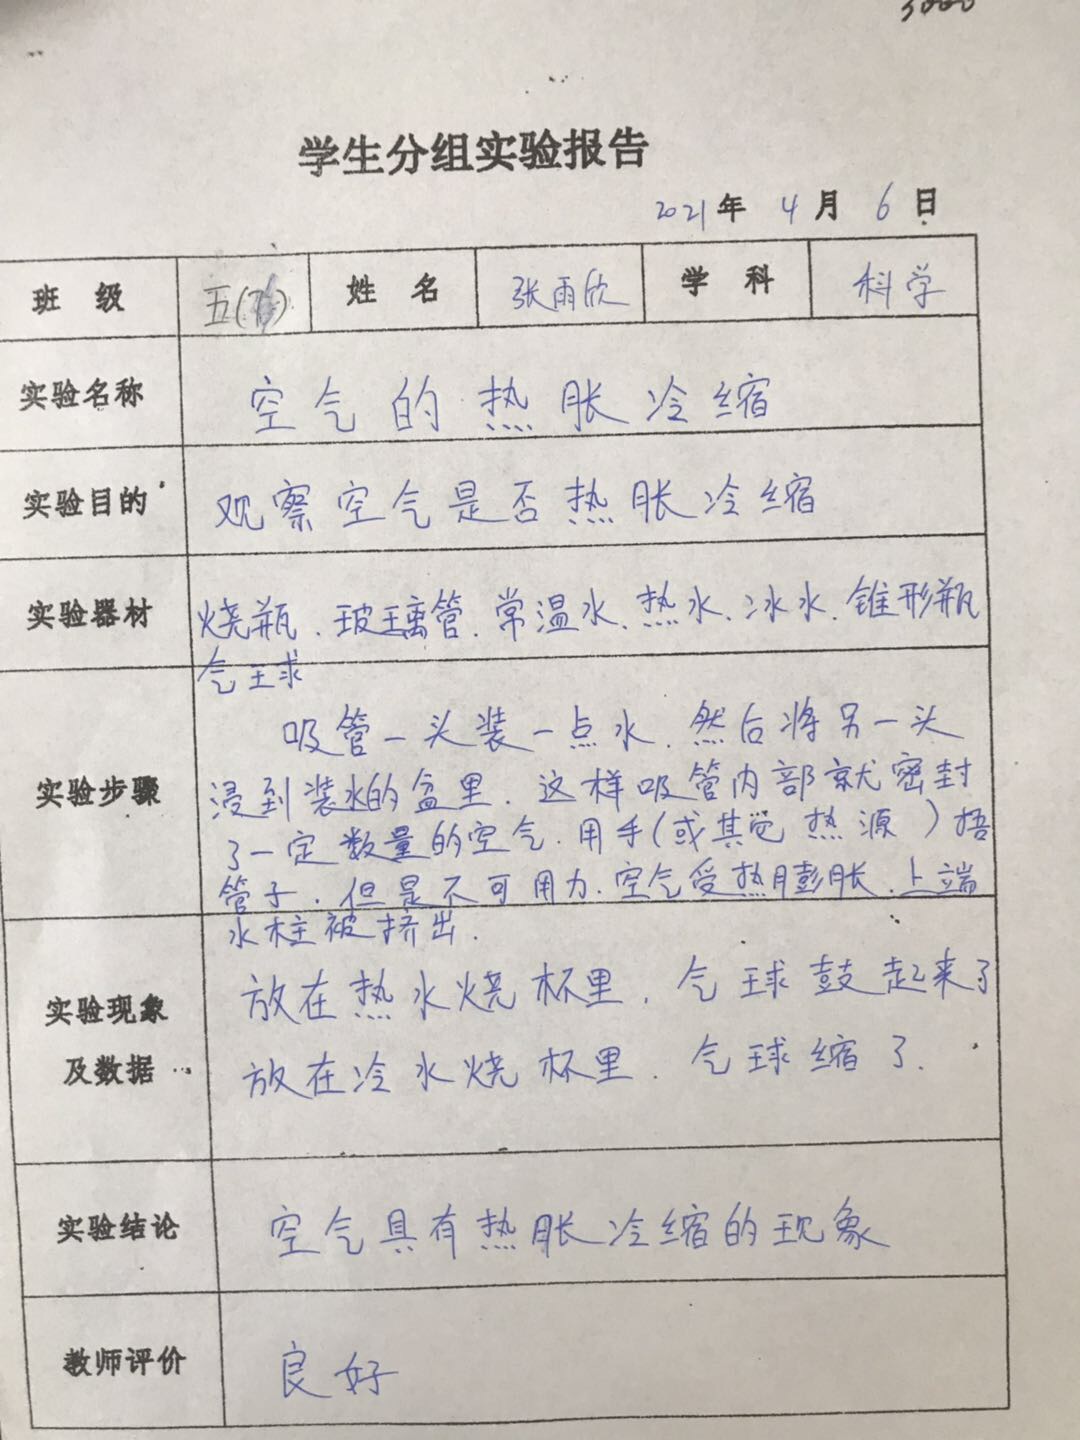 学生分组实验报告
2021年 4月 6日
班 级 五( ) 姓 名 张雨欣 学 科 科学
实验名称 空气的热胀冷缩
实验目的 观察空气是否热胀冷缩
实验器材 烧瓶、玻璃管、常温水、热水、冰水、锥形瓶
气球
吸管一头装一点水,然后将另一头
实验步骤 浸到装水的盆里,这样吸管内部就密封
了一定数量的空气,用手(或其他热源)捂
管子,但是不可用力.空气受热膨胀,上端
水柱被挤出.
实验现象 放在热水烧杯里,气球鼓起来了
及数据 放在冷水烧杯里,气球缩了.
实验结论 空气具有热胀冷缩的现象
教师评价 良好